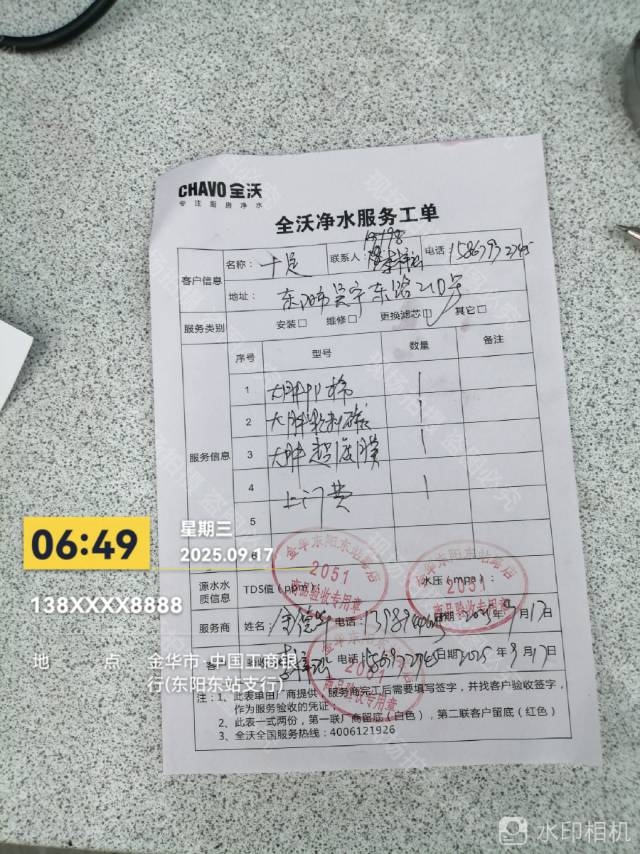 CHAVO 全沃
专注厨房净水
全沃净水服务工单
客户信息 名称： 十足 联系人 电话
地址： 东阳市吴宁东路210号
服务类别 安装□ 维修□ 更换滤芯□ 其它□
序号 型号 数量 备注
服务信息
1 大胖PP棉 1
2 大胖颗粒碳 1
3 大胖超滤膜 1
4 上门费 1
5
6
源水水质信息 TDS值（ppm）： 水压（mpa）：
服务商 姓名： 电话： 日期 2025年9月17日
客户 验收 电话 日期 2025年9月17日
注：1、此表单由厂商提供，服务商完工后需要填写签字，并找客户验收签字，
作为服务验收的凭证；
2、此表一式两份，第一联厂商留底（白色），第二联客户留底（红色）
3、全沃全国服务热线：4006121926
金华东阳东站店
2051
商品验收专用章
金华东阳东站店
2051
商品验收专用章
金华东阳东站店
2051
商品验收专用章
06:49
星期三
2025.09.17
138XXXX8888
地 点 金华市·中国工商银
行(东阳东站支行)
水印相机